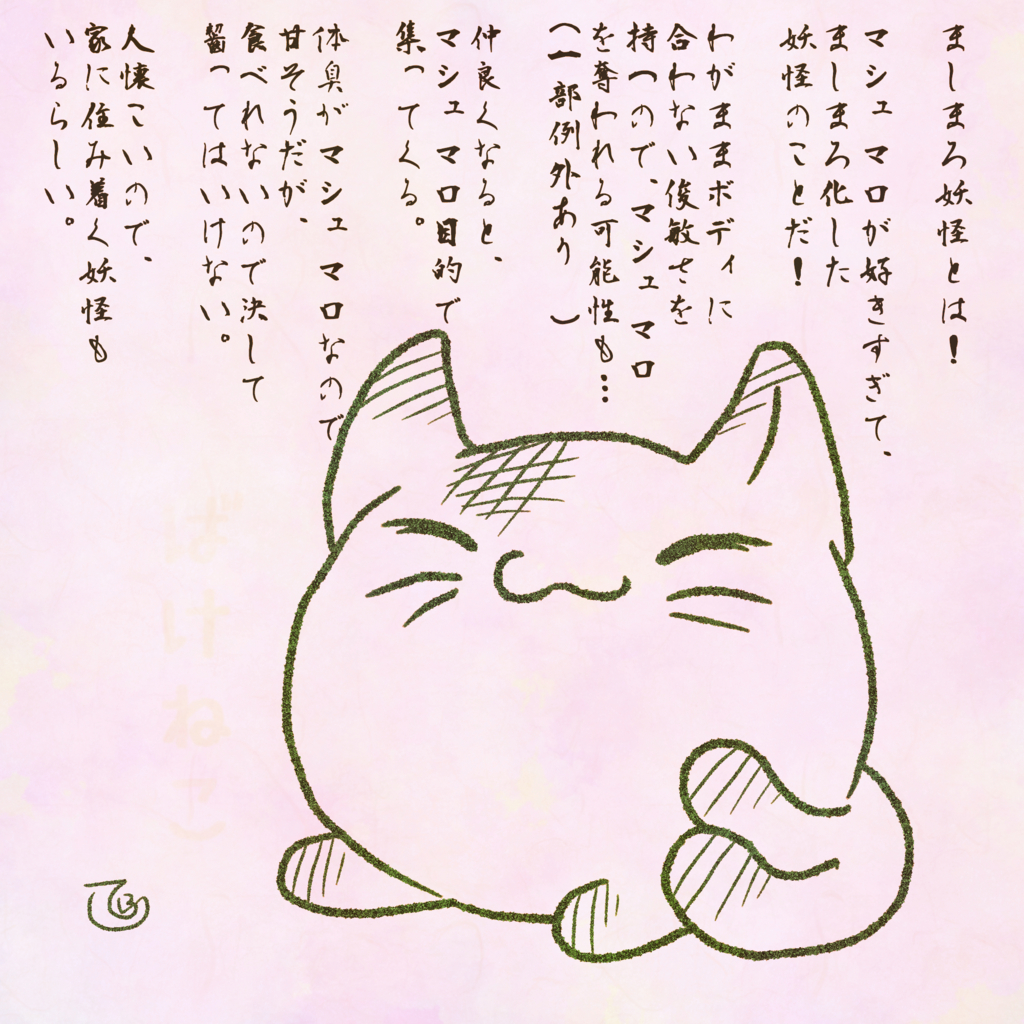 ましまろ妖怪とは!
マシュマロが好きすぎて、
ましまろ化した
妖怪のことだ!
わがままボディに
合わない俊敏さを
持つので、マシュマロ
を奪われる可能性も…
(一部例外あり)
仲良くなると、
マシュマロ目的で
集ってくる。
体臭がマシュマロなので
甘そうだが、
食べれないので決して
齧ってはいけない。
人懐こいので、
家に住み着く妖怪も
いるらしい。
ばけねこ